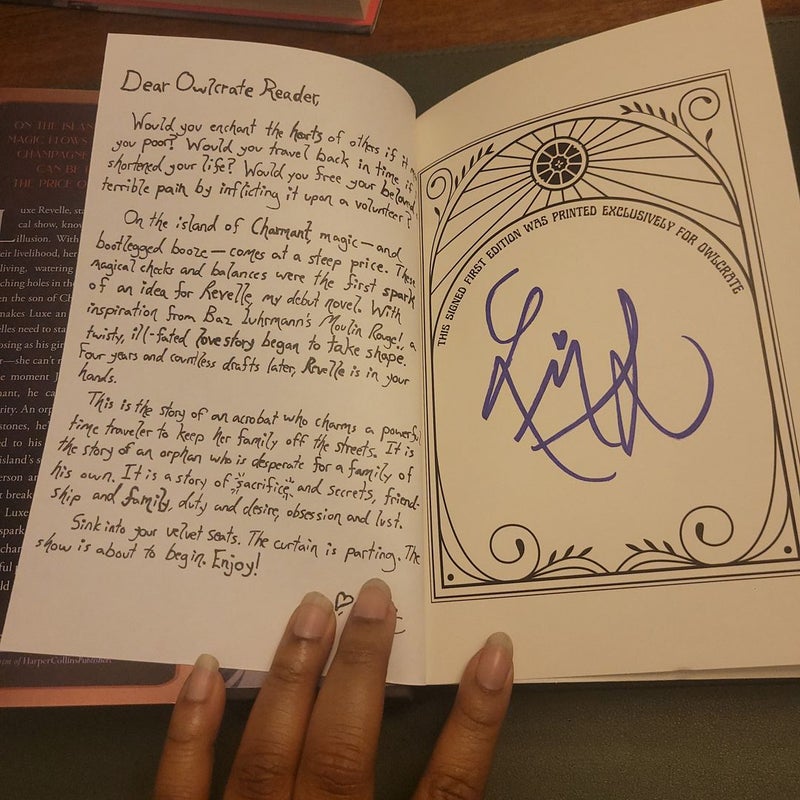 ON THE ISLAN
MAGIC FLOWS
CHAMPAGNE
CAN BE
THE PRICE O
uxe Revelle, sta
cal show, know
illusion. With
eir livelihood, her
living, watering
ching holes in the
en the son of Ch
makes Luxe an
elles need to star
osing as his girl
—she can't r
e moment J
nant, he ca
rity. An orp
stones, he'
ed to his
island's s
erson ar
t break
Luxe
spark
char
ful
ld
of HarperCollinsPublishers
Dear Owlcrate Reader,
Would you enchant the hearts of others if it
you poor? Would you travel back in time if
shortened your life? Would you free your beloved
terrible pain by inflicting it upon a volunteer?
On the island of Charmant, magic—and
bootlegged booze—comes at a steep price. These
magical checks and balances were the first spark
of an idea for Revelle, my debut novel. With
inspiration from Baz Luhrmann's Moulin Rouge!, a
twisty, ill-fated love story began to take shape.
Four years and countless drafts later, Revelle is in your
hands.
This is the story of an acrobat who charms a powerful
time traveler to keep her family off the streets. It is
the story of an orphan who is desperate for a family of
his own. It is a story of sacrifice and secrets, friend-
ship and family, duty and desire, obsession and lust.
Sink into your velvet seats. The curtain is parting. The
show is about to begin. Enjoy!
THIS SIGNED FIRST EDITION WAS PRINTED EXCLUSIVELY FOR OWLCRATE